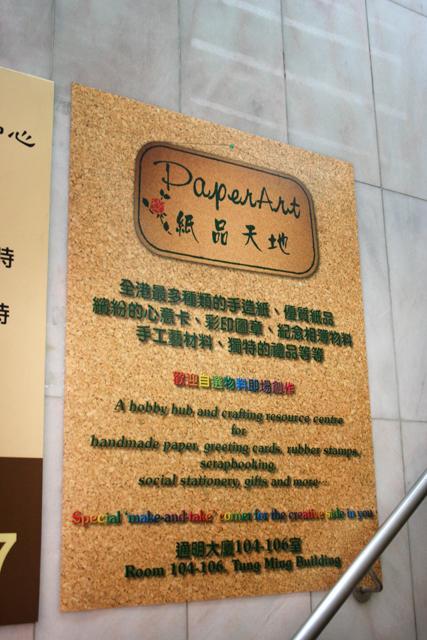 心
時
時
7
PaperArt
紙品天地
全港最多種類的手造紙、優質紙品
繽紛的心意卡、彩印圖章、紀念相薄物料
手工藝材料、獨特的禮品等等
歡迎自選物料即場創作
A hobby hub and crafting resource centre
for
handmade paper, greeting cards, rubber stamps,
scrapbooking,
social stationery, gifts and more…
Special 'make-and-take' corner for the creative side in you
通明大廈104-106室
Room 104-106, Tung Ming Building